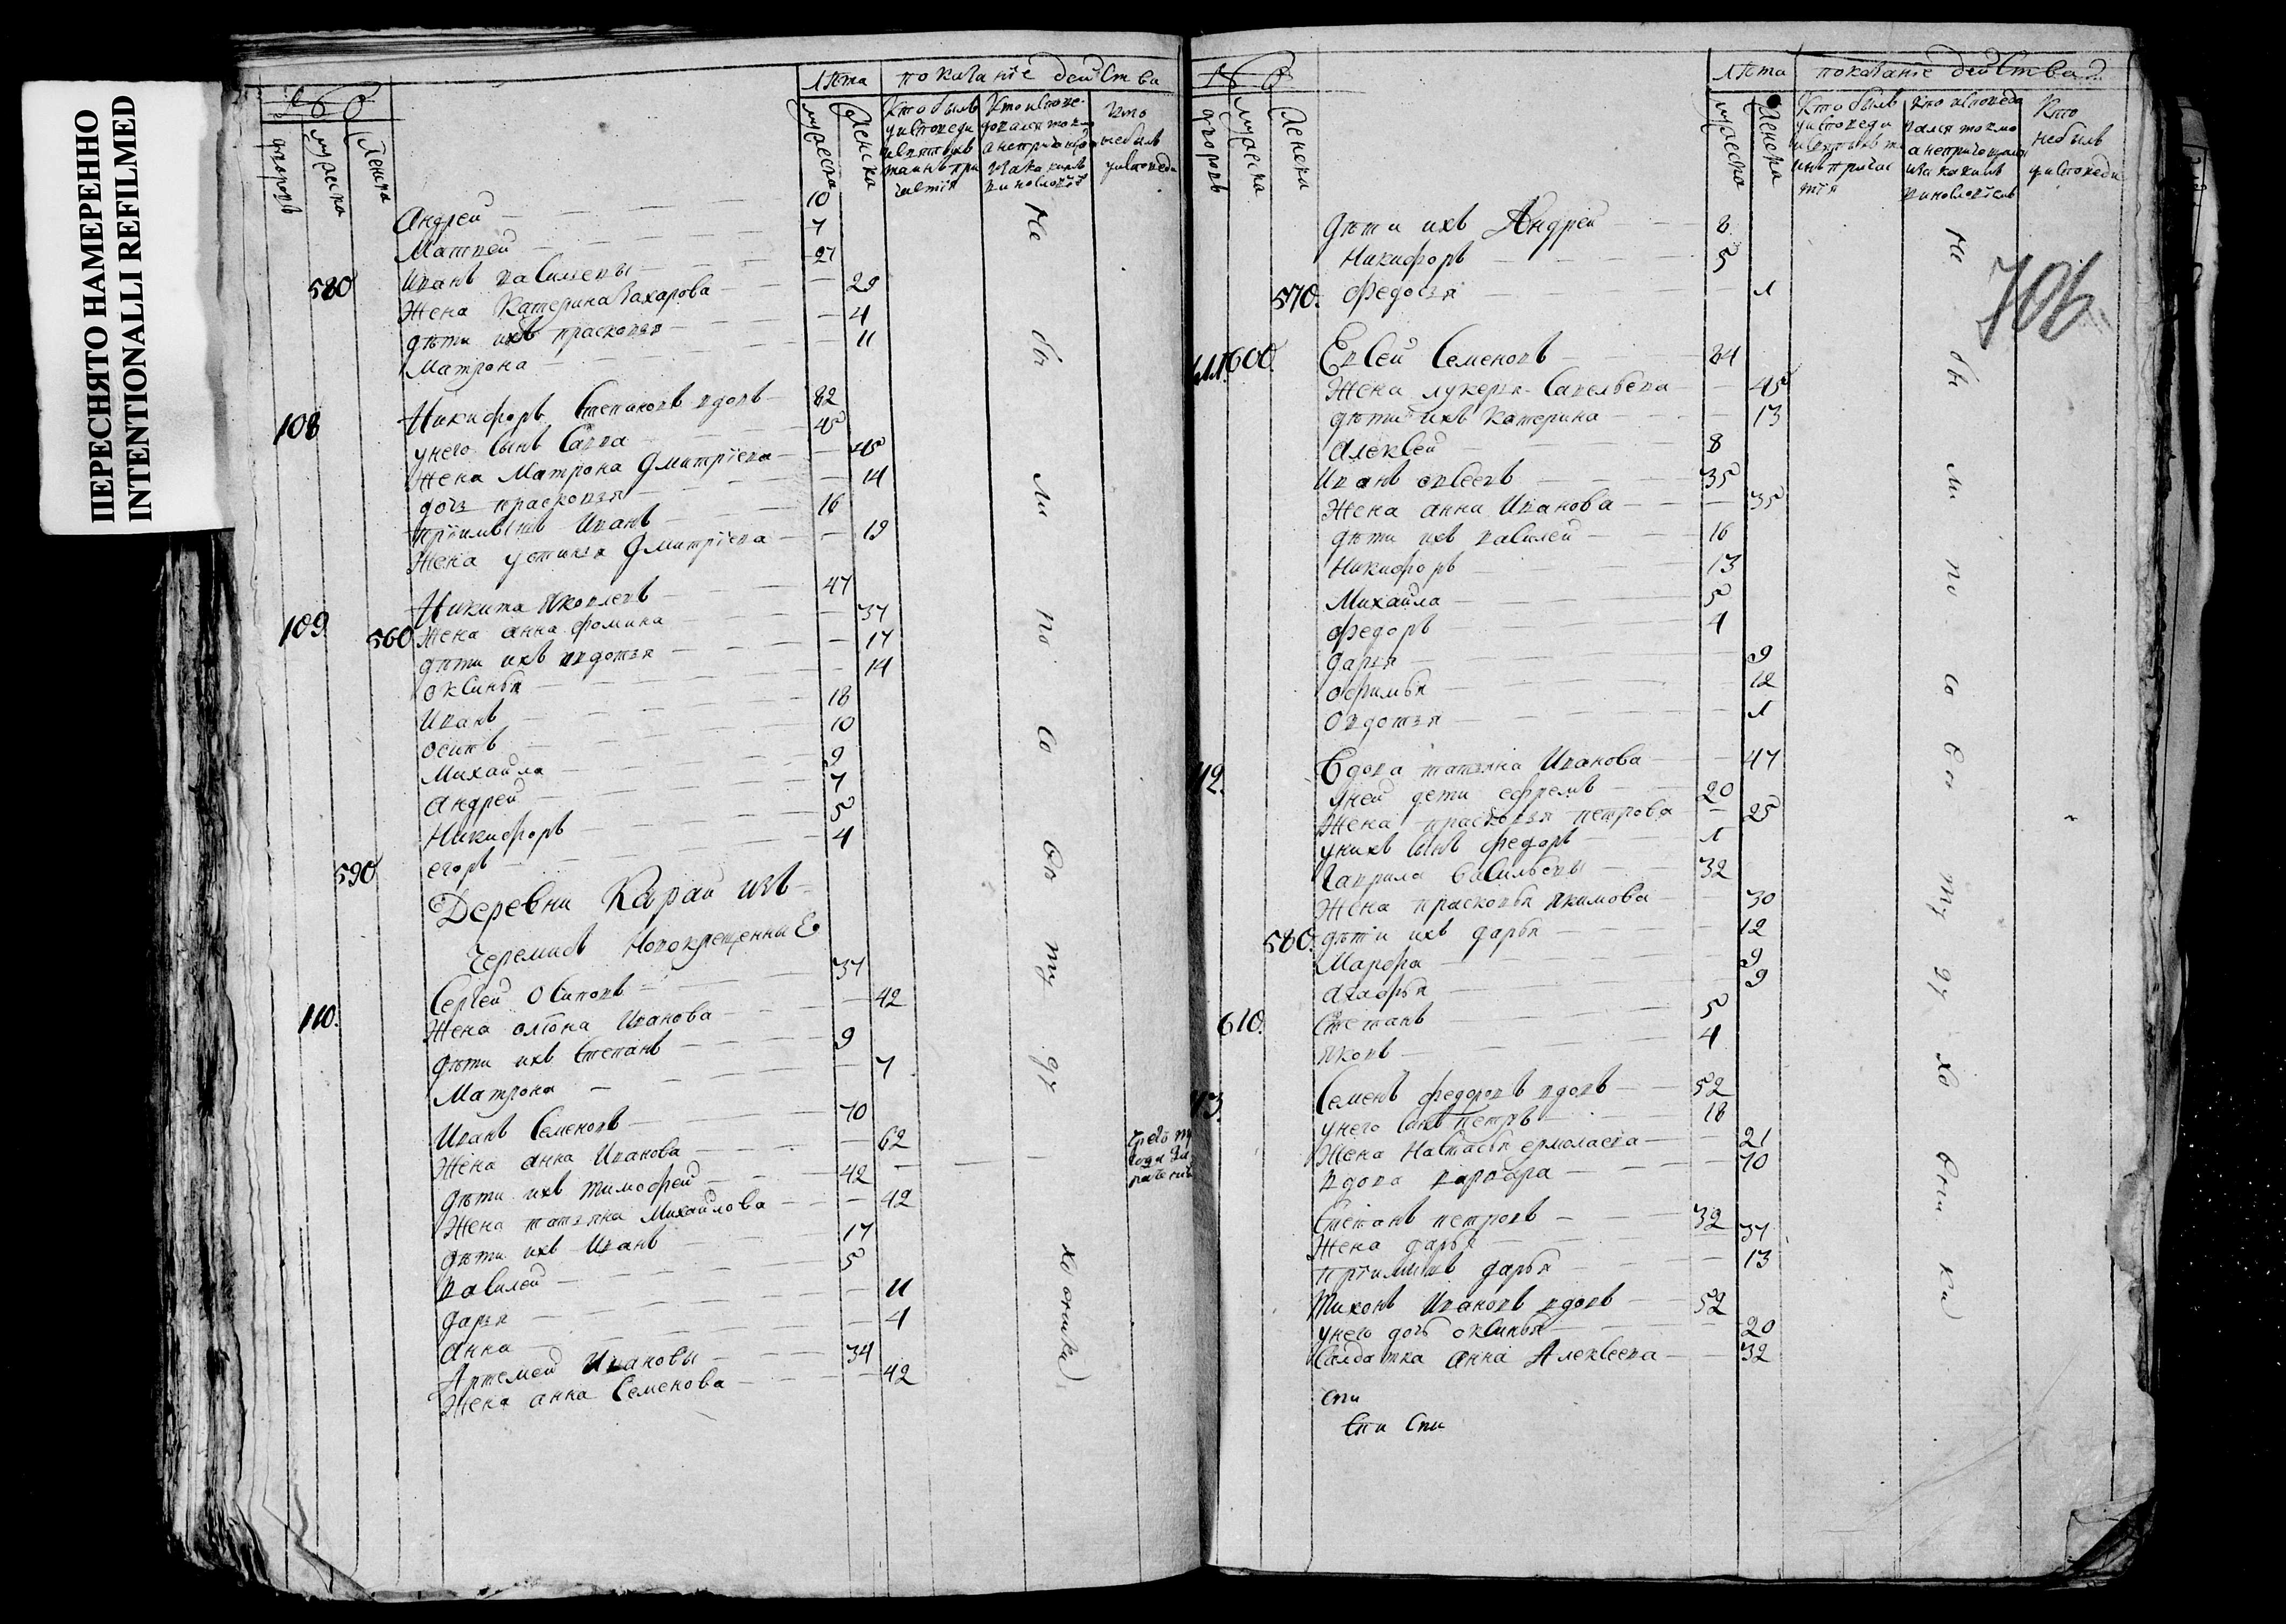 ПЕРЕСНЯТО НАМЕРЕННО
INTENTIONALLI REFILMED
№
лѣта показание действа
дворовъ мужеска женска мужеска женска
Кто былъ у исповеди и святыхъ таинъ причастия
Кто исповедовался токмо а не причащался и за какимъ виновствомъ
Кто небылъ у исповеди
Андрей 10
Матвей 7
580 Иванъ васильевы 27
Жена Катерина Захарова 29
дѣти ихъ прасковья 4
Матрона 11
108 Никифоръ Степановъ вдовъ 82
у него сынъ Савва 45
Жена Матрона Дмитрїева 45
дочь прасковья 14
прїимышъ Иванъ 16
Жена устинья Дмитрїева 19
109 Никита Яковлевъ 47
560 Жена анна фомина 37
дѣти ихъ авдотья 17
оксинья 14
Иванъ 18
осипъ 10
Михайла 9
андрей 7
Никифоръ 5
590 егоръ 4
Деревни Караи изъ
Черемисъ Новокрещенны Е
110. Сергей Осиповъ 37
Жена олѣона Иванова 42
дѣти ихъ Степанъ 9
Матрона 7
Иванъ Семеновъ 70
Жена анна Иванова 62
дѣти ихъ тимофей 42
Жена татьяна Михайлова 42
дѣти ихъ Иванъ 17
василей 5
дарья 11
анна 4
Артемей Ивановы 34
Жена анна Семенова 42
Не бы ли по со бст ту ду хо вника
№
лѣта показание действа
дворовъ мужеска женска мужеска женска
Кто былъ у исповеди и святыхъ таинъ причастия
Кто исповедался токмо а не причащался и за какимъ виновствомъ
Кто небылъ у исповеди
706
дѣти ихъ Андрей 8
Никифоръ 5
570. федосья 1
111. 600. Евсей Семеновъ 84
Жена лукерья Савельева 45
дѣти ихъ катерина 13
алексей 8
Иванъ овсеевъ 35
Жена анна Иванова 35
дѣти ихъ василей 16
Никифоръ 13
Михайла 5
федоръ 4
дарья 9
офимья 12
овдотья 1
112. Вдова татьяна Иванова 47
у ней дети ефремъ 20
Жена прасковья петрова 25
у нихъ сынъ федоръ 1
Гаврила васильевы 32
Жена прасковья якимова 30
580. дѣти ихъ дарья 12
Марфа 9
агафья 9
610. Степанъ 5
яковъ 4
113. Семенъ федоровъ вдовъ 52
у него сынъ петръ 18
Жена Настасья ермолаева 21
вдова варвара 70
Степанъ петровъ 32
Жена дарья 37
прїимышъ дарья 13
Тихонъ Ивановъ вдовъ 52
у него дочь оксинья 20
Салдатка анна Алексеева 32
спи
Спи Спи
Не бы ли по со бст ту ду хо вни ка